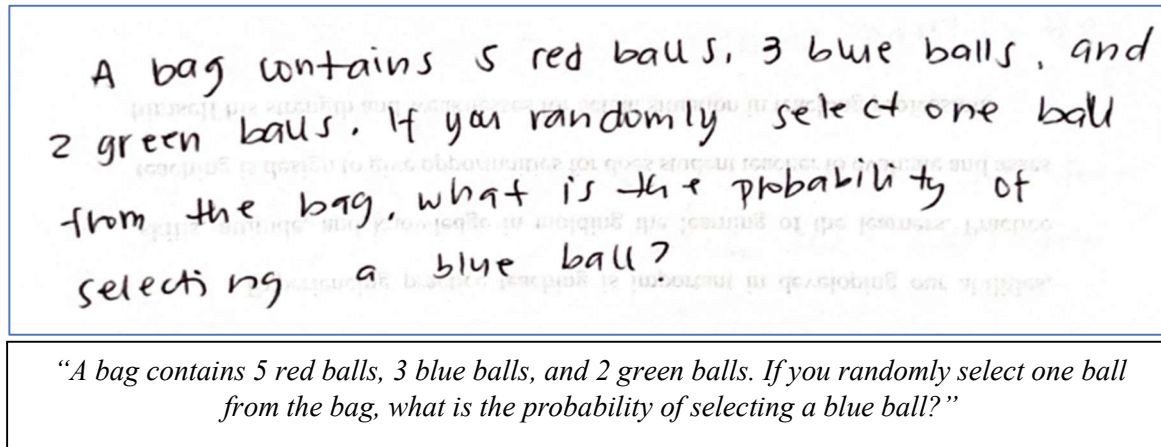 A bag contains 5 red balls, 3 blue balls, and
2 green balls. If you randomly select one ball
from the bag, what is the probability of
selecting a blue ball?
“A bag contains 5 red balls, 3 blue balls, and 2 green balls. If you randomly select one ball
from the bag, what is the probability of selecting a blue ball?”